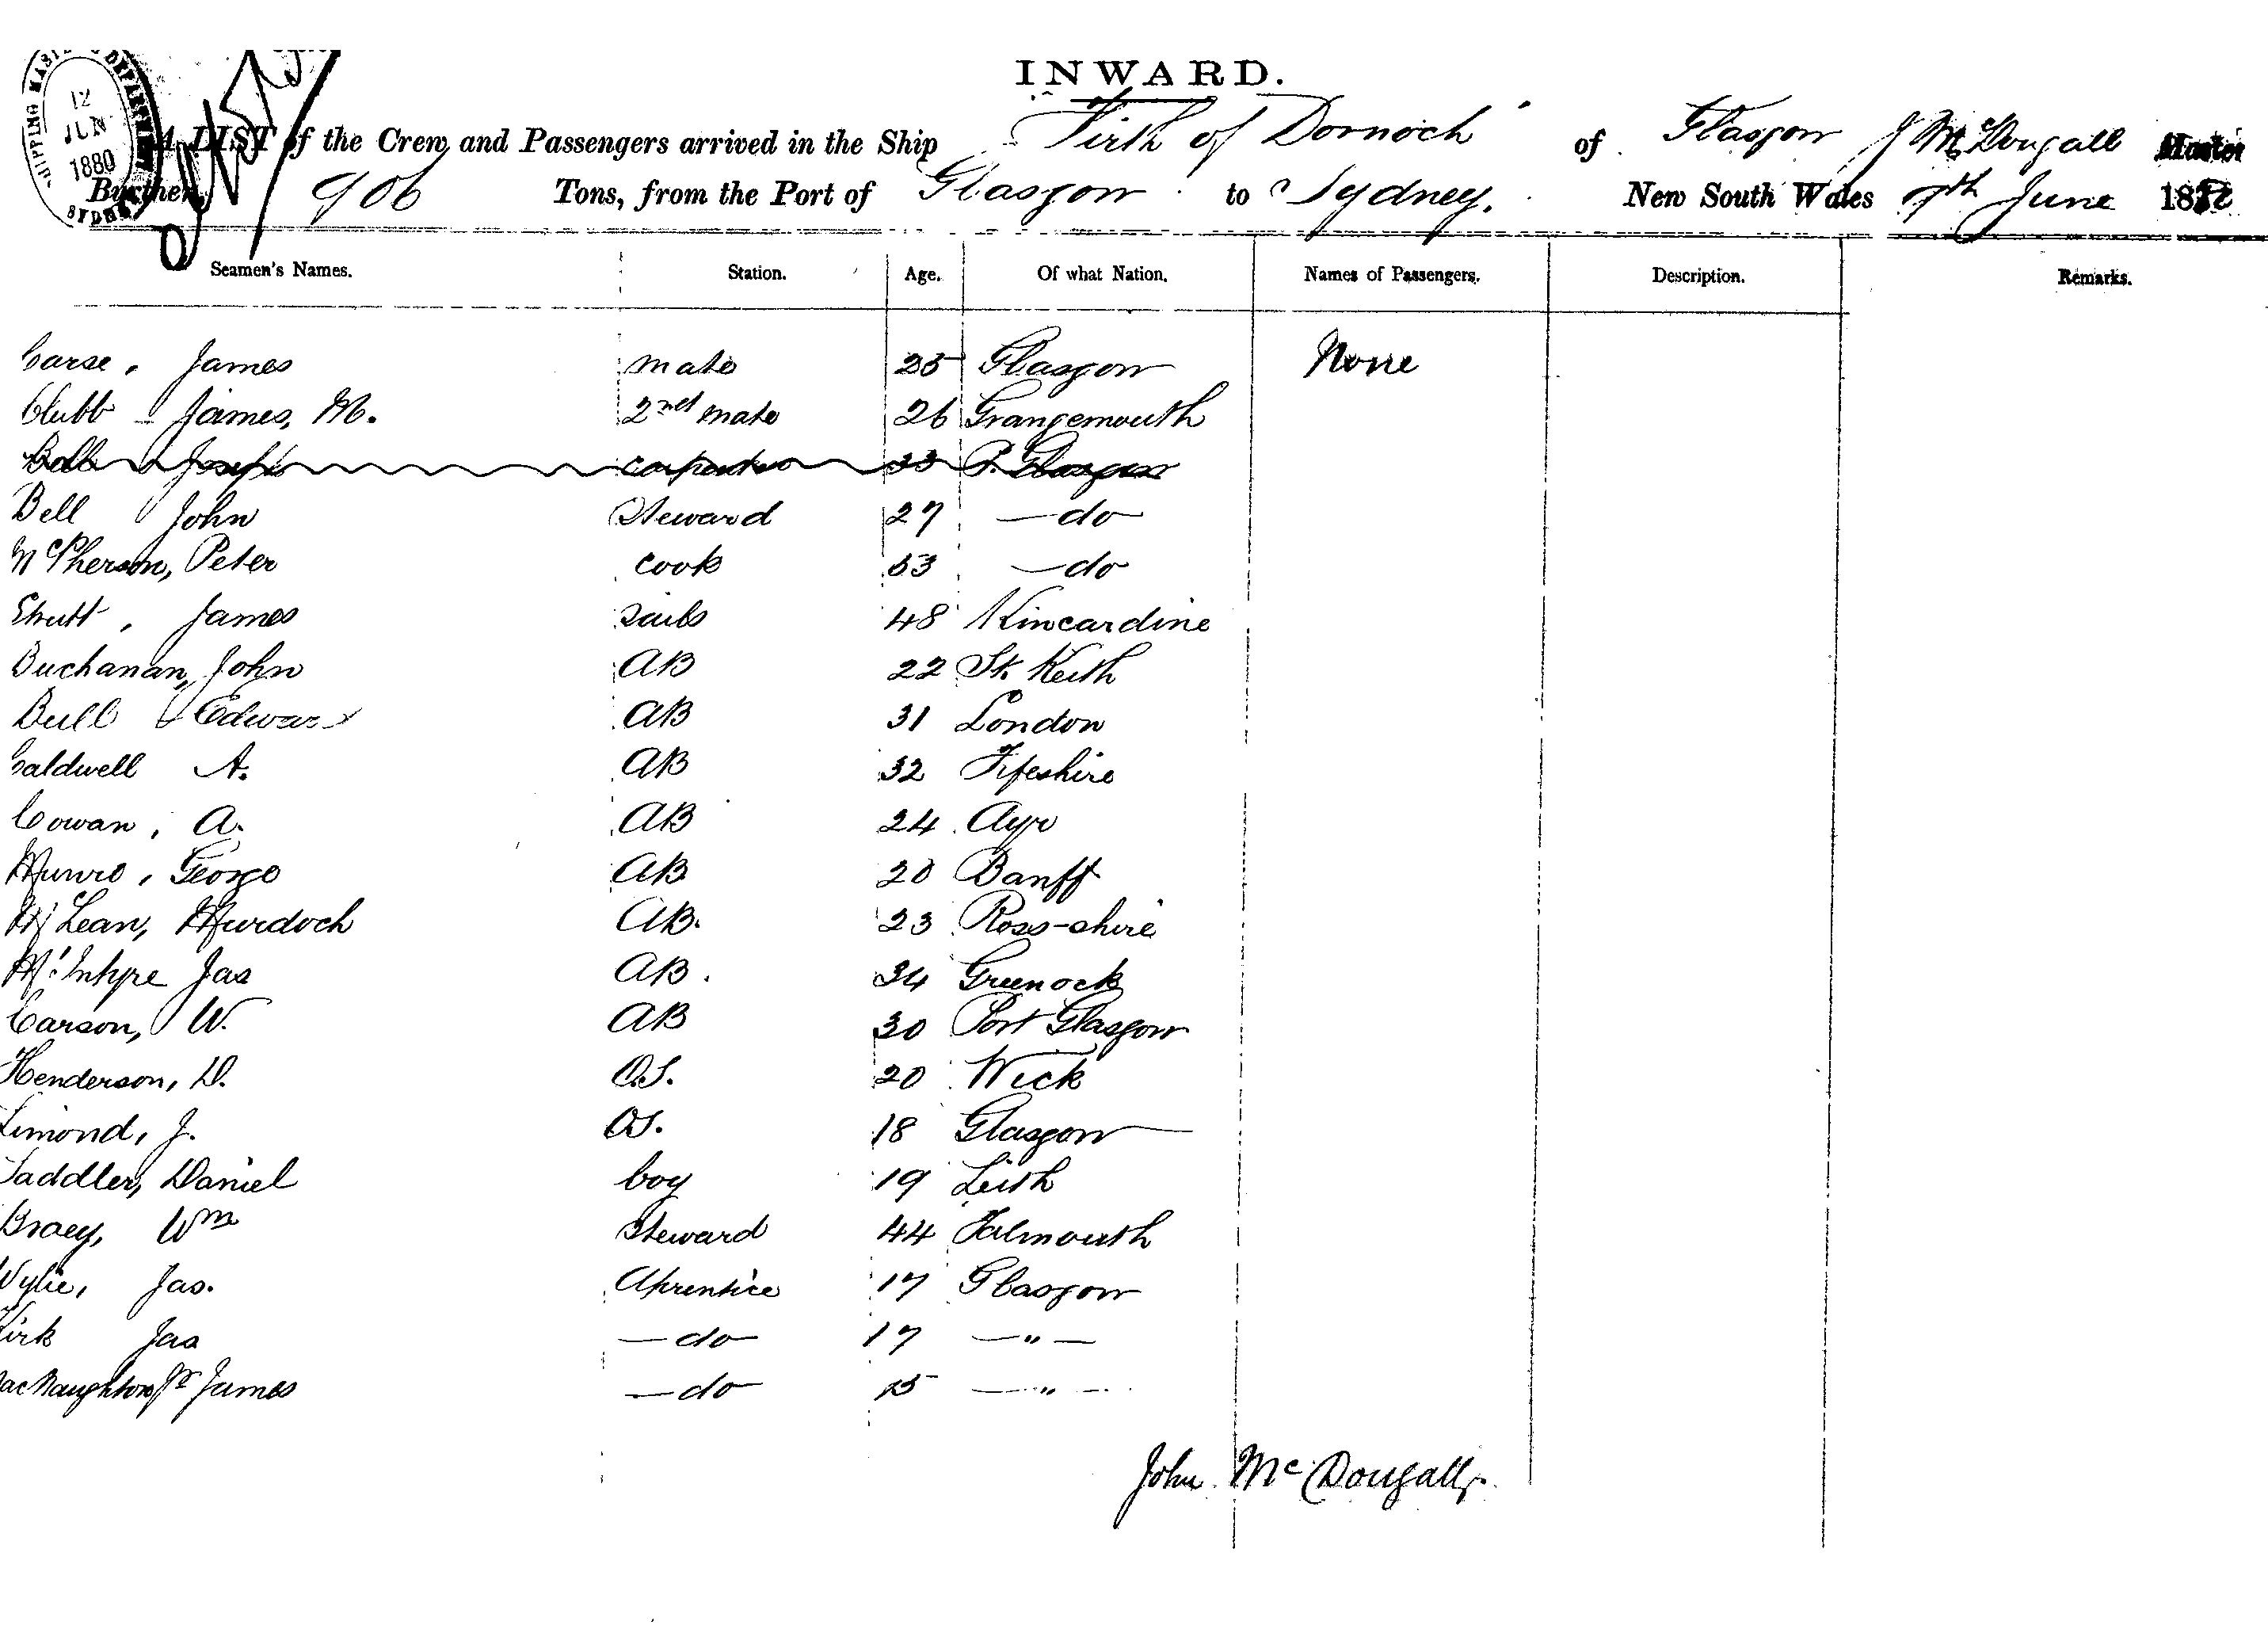 INWARD.
SHIPPING MASTER'S DEPARTMENT
12
JUN
1880
SYDNEY
A LIST of the Crew and Passengers arrived in the Ship Firth of Dornoch of Glasgow J McDougall Master
Burthen, 906 Tons, from the Port of Glasgow to Sydney. New South Wales 7th June 18
Seamen's Names. Station. Age. Of what Nation. Names of Passengers. Description. Remarks.
Carse, James mate 25 Glasgow None
Clubb James, M. 2nd mate 26 Grangemouth
Bell Joseph carpenter 33 P. Glasgow
Bell John Steward 27 —do—
McPherson, Peter cook 53 —do
James Sails 48 Kincardine
Buchanan, John AB 22 St. Keith
Bull Edward AB 31 London
Caldwell A. AB 32 Fifeshire
Cowan, A. AB 24 Ayr
Munro, George AB 20 Banff
McLean, Murdoch AB. 23 Ross-shire
McIntyre Jas AB. 34 Greenock
Carson, W. AB 30 Port Glasgow
Henderson, D. O.S. 20 Wick
Limond, J. OS. 18 Glasgow
Saddler, Daniel boy 19 Leith
Bracy, Wm Steward 44 Falmouth
Wylie, Jas. Aprentice 17 Glasgow
Kirk Jas —do— 17 — " —
MacNaughton Jr James —do— 15 — " —
John McDougall